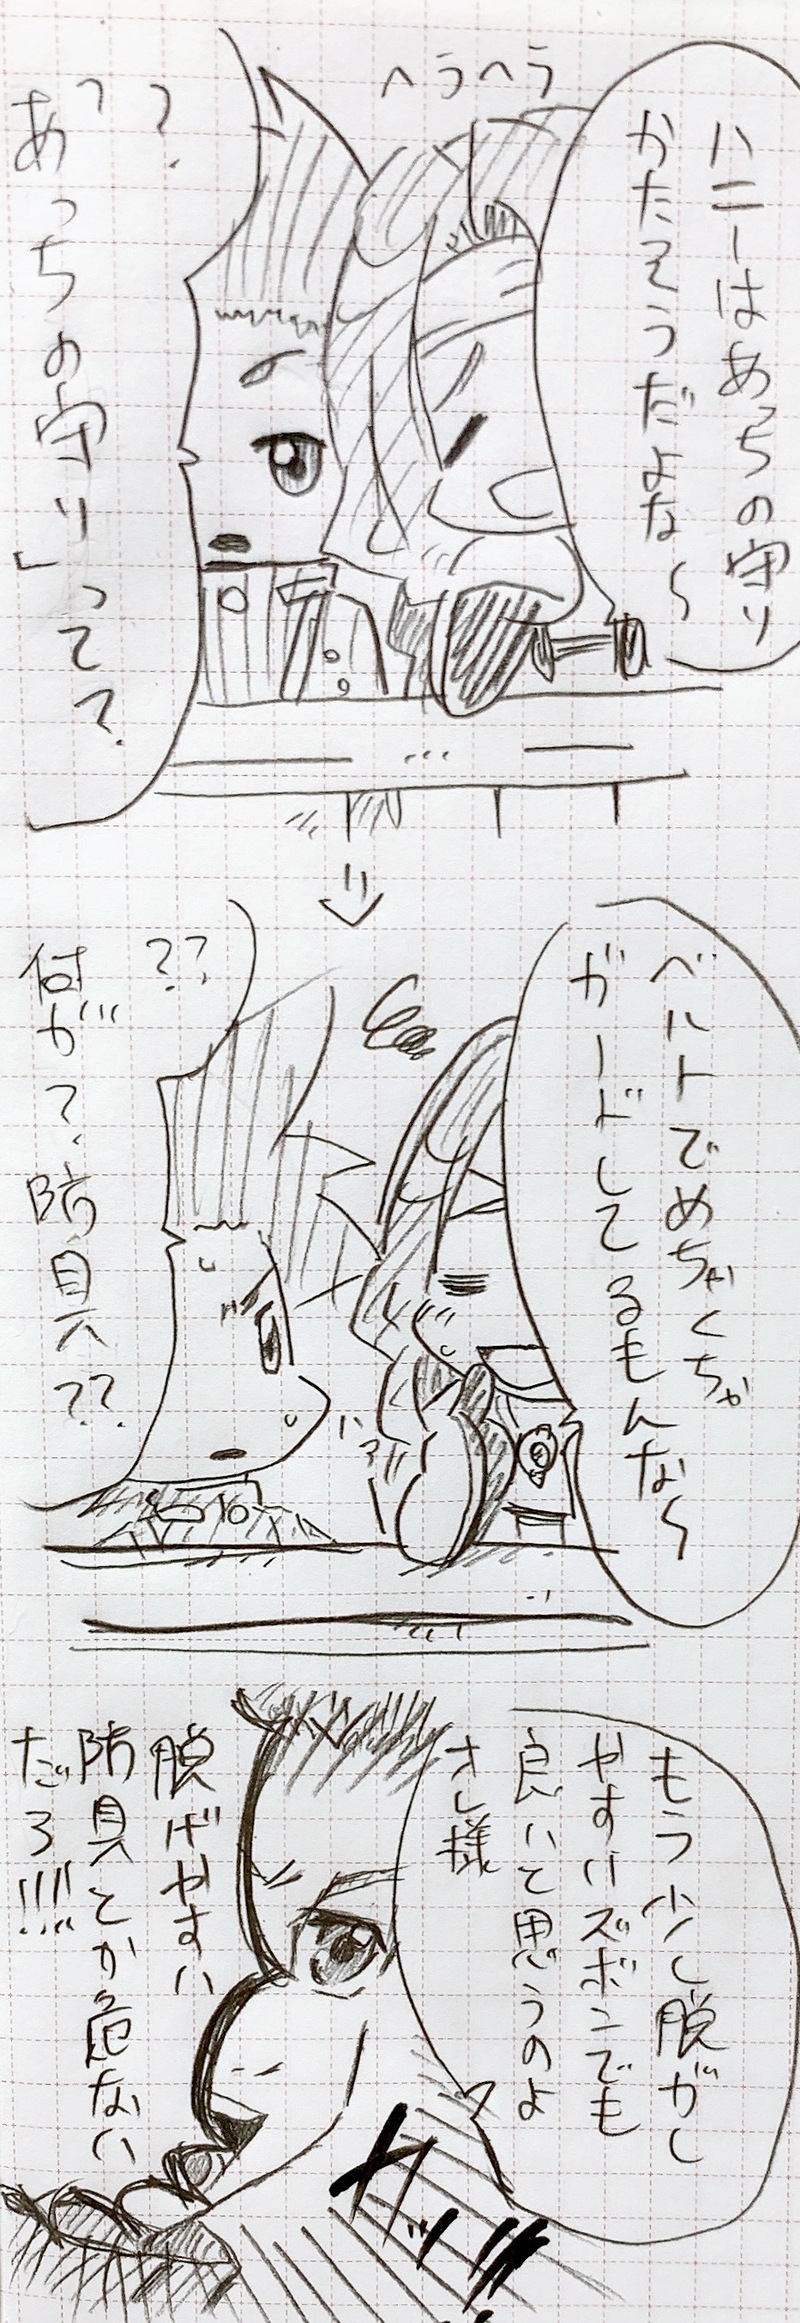 ヘラヘラ
ハニーはあっちの守り
かたそうだよな〜
??
あっちの守り」って?
ベルトでめちゃくちゃ
ガードしてるもんな〜
??
何が?防具??
もう少し脱がし
やすいズボンでも
良いて思うのよ
オレ様
脱げやすい
防具とか危ない
だろ!!!
ガッ